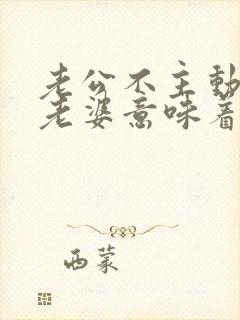 老公不主动
老婆意味着
西蒙